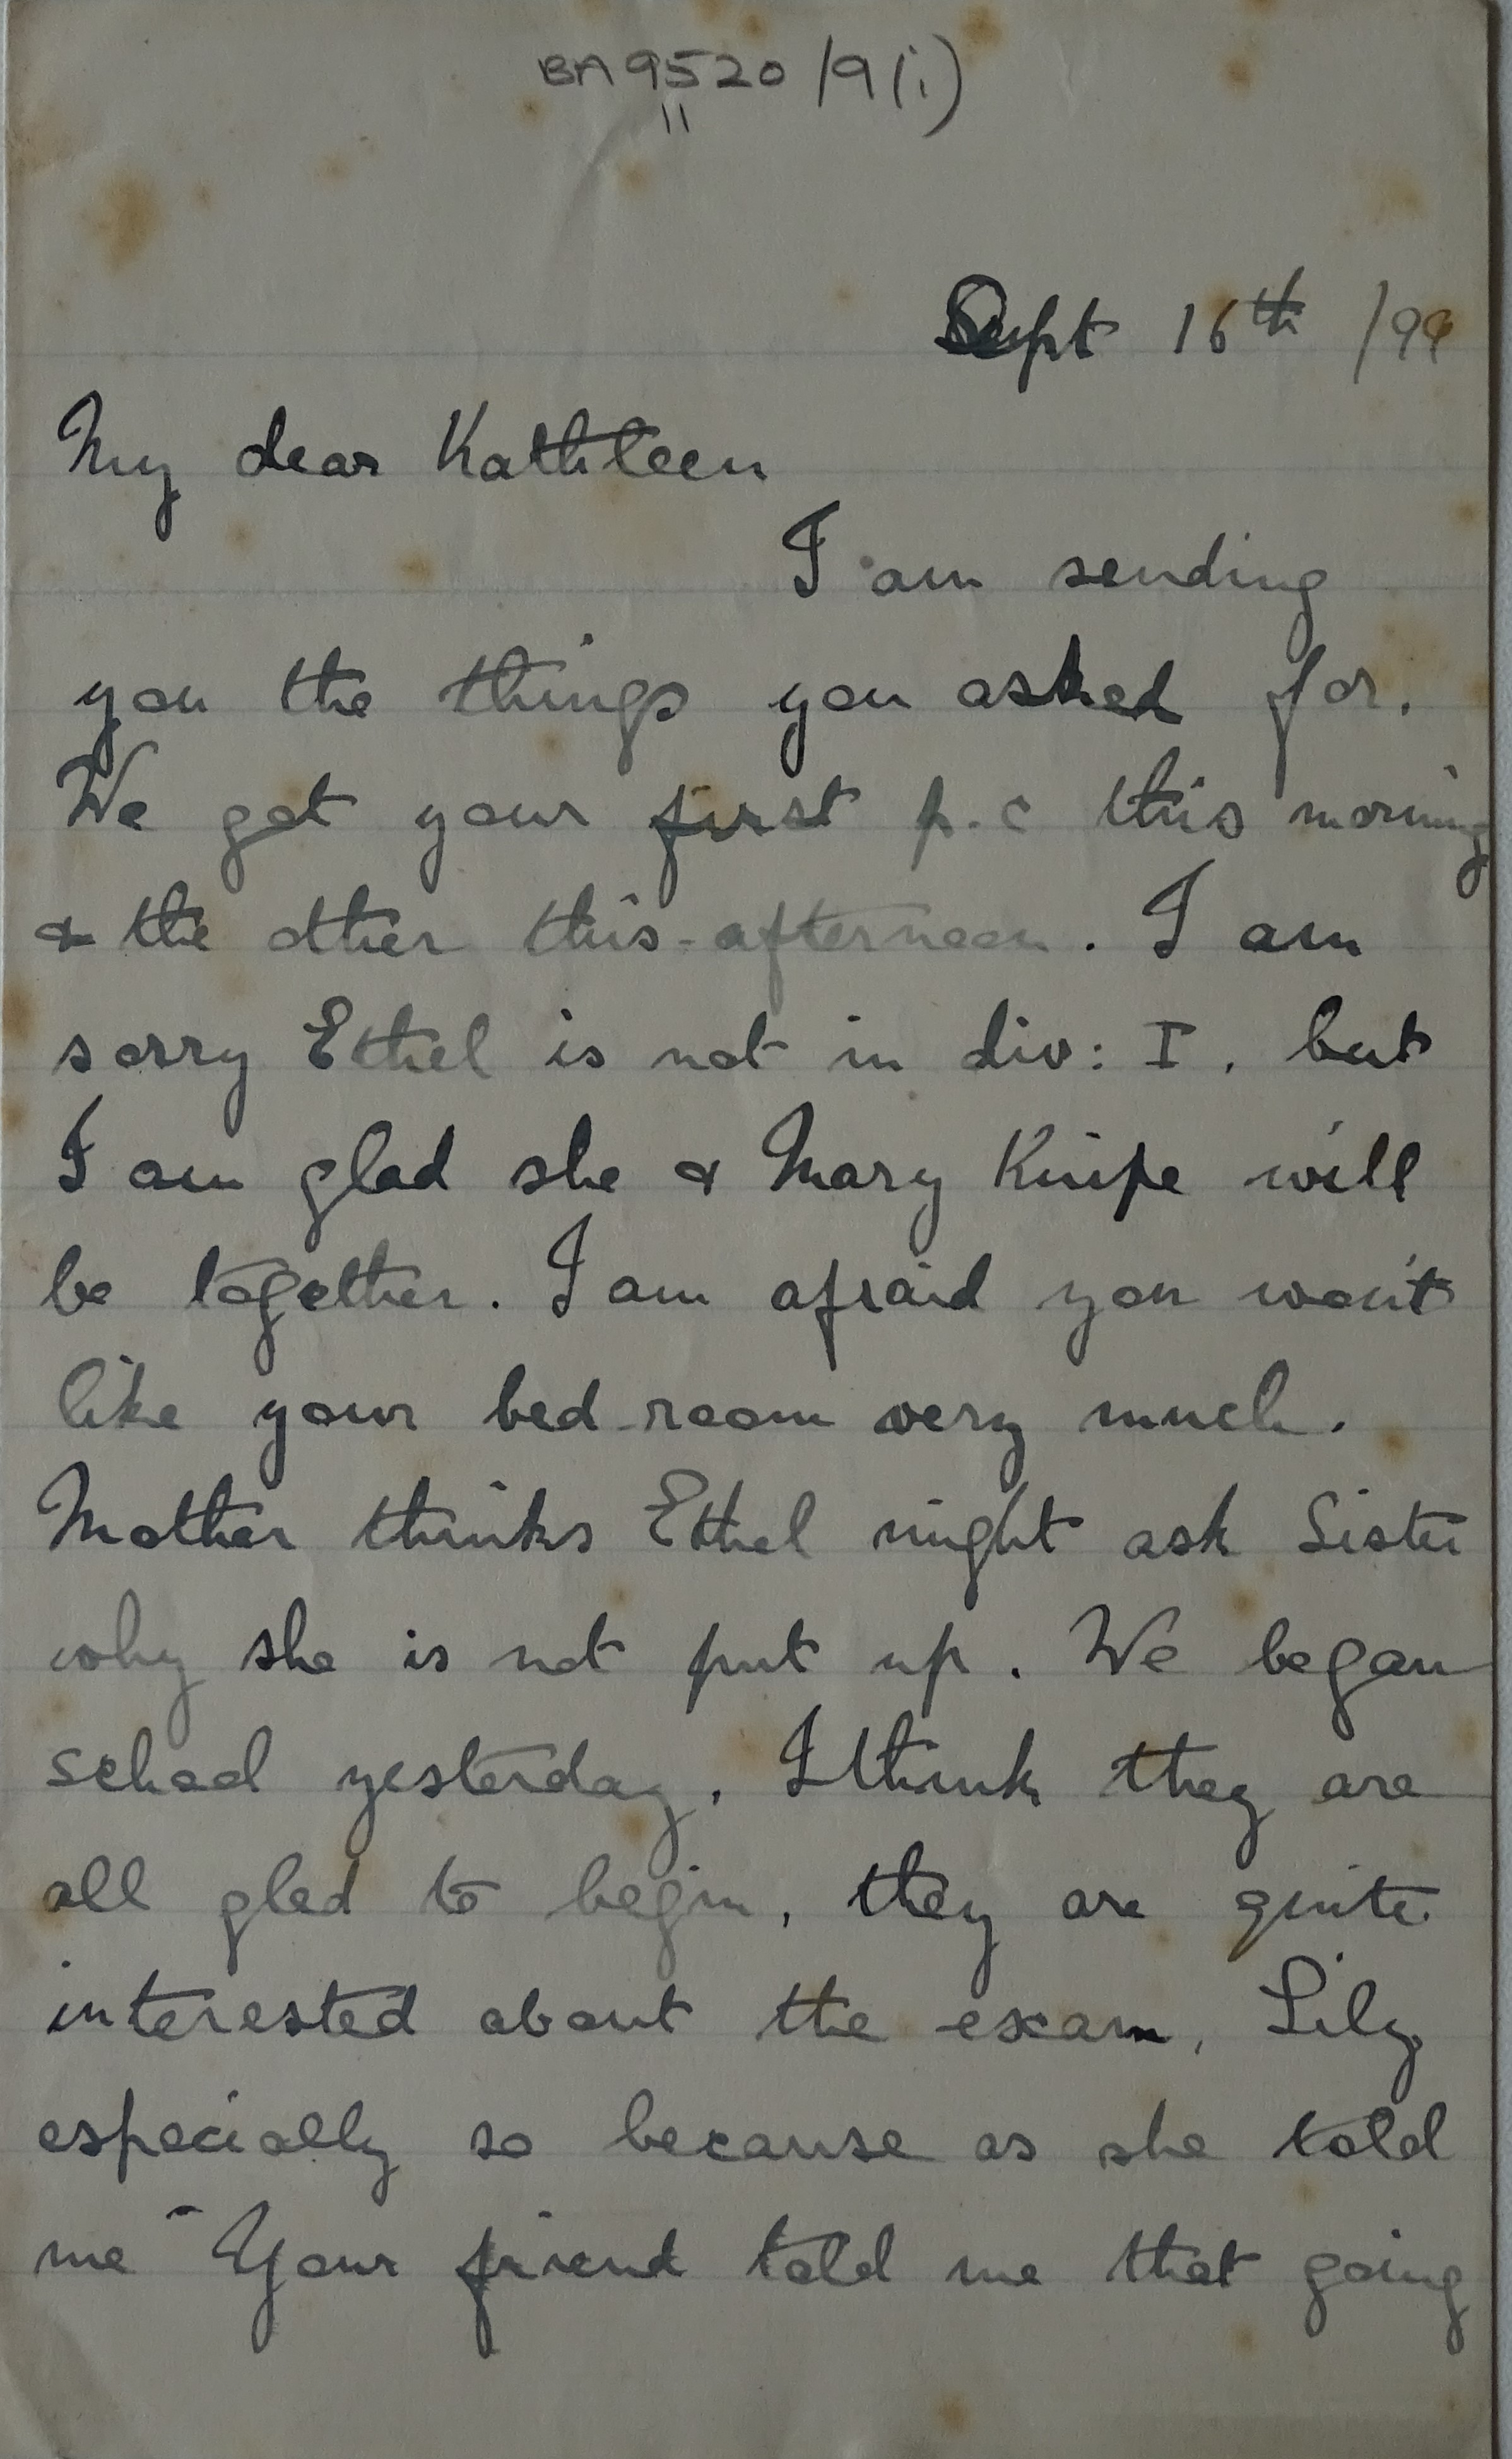 BA 9520 /9(i)
11
Sept 16th /99
My dear Kathleen
I am sending
you the things you asked for.
We got your first p.c this morning
& the other this afternoon. I am
sorry Ethel is not in div: I, but
I am glad she & Mary Knipe will
be together. I am afraid you won't
like your bed-room very much.
Mother thinks Ethel might ask Sister
why she is not put up. We began
school yesterday, I think they are
all glad to begin, they are quite
interested about the exam, Lily
especially so because as she told
me "Your friend told me that going